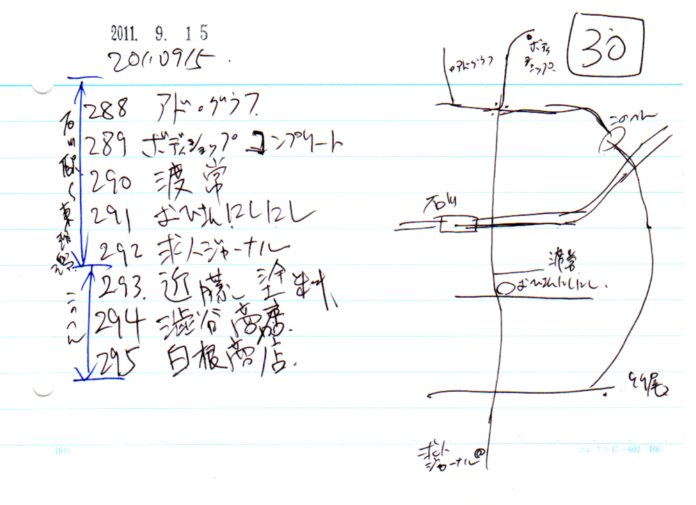 2011. 9. 15
20110915.
30
288 アド・グラフ
289 ボディショップ コンプリート
290 渡常
291 おひさまにしにし
292 求人ジャーナル
293. 近藤塗料
294 澁谷商店.
295 白根商店.
このへん
アドグラフ
ボディ
ショップ.
このへん
石山
渡常
おひさまにしにし.
求人
ジャーナル